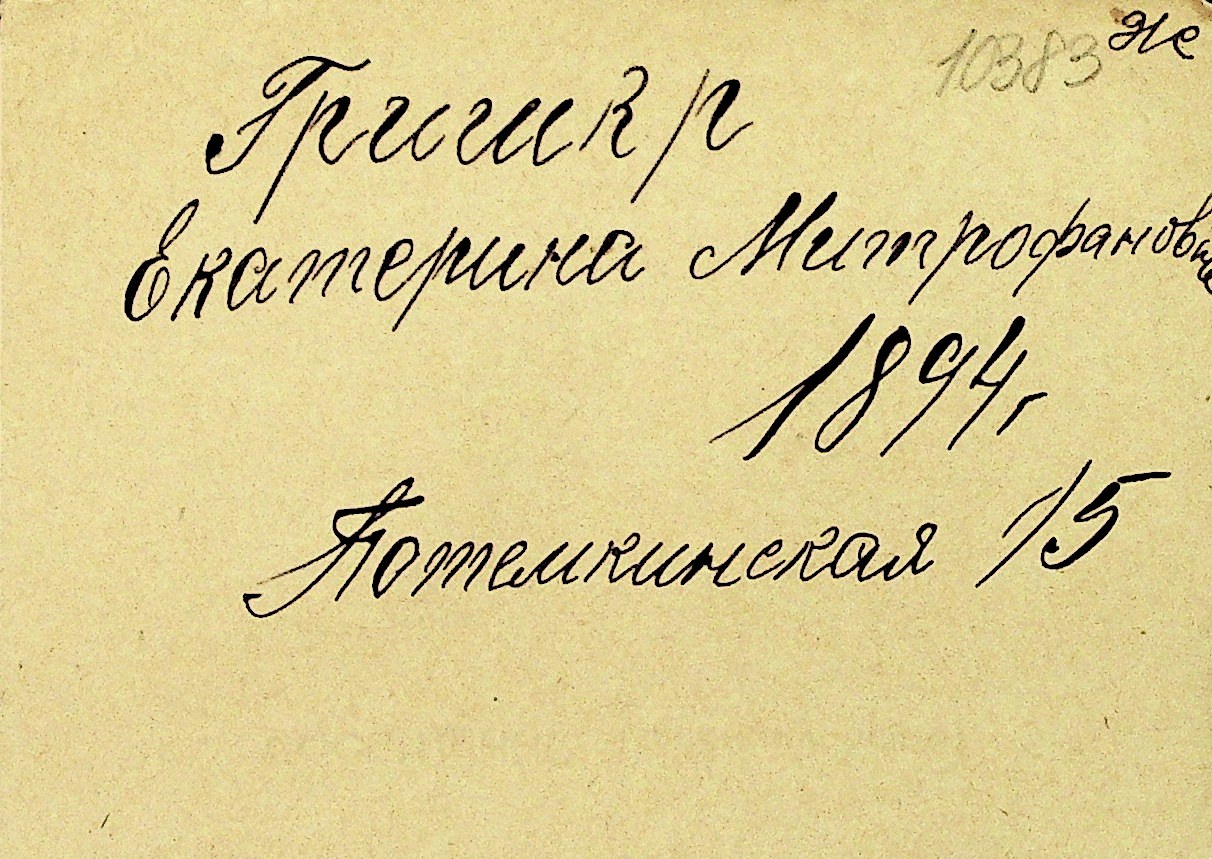 10383 же
Екатерина Митрофановна
1894г
Потемкинская 15